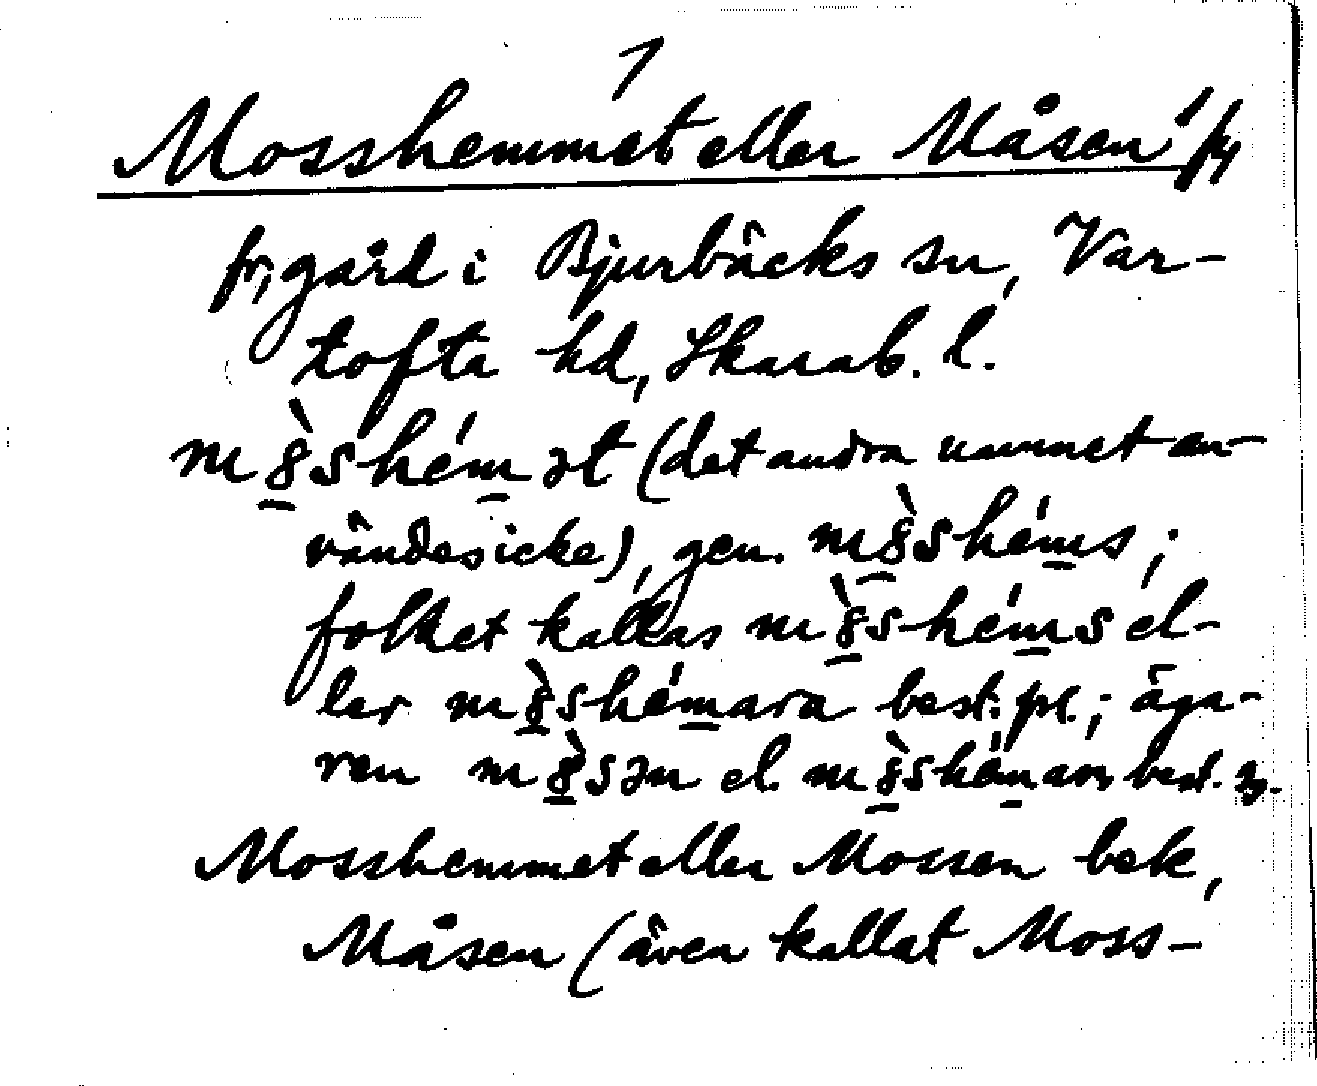 1
Mosshemmet eller Måsen 1/4
fr, gård i Bjurbäcks sn, Var-
tofta hd, Skarab. l.
m8̀shém ət (det andra namnet an-
vändes icke), gen. m8̀shéms;
folket kallas m8̀shéms el-
ler m8̀shémara best. pl.; äga-
ren m8̀sən el. m8̀shéman best. sg.
Mosshemmet eller Mossen bek,
Måsen (även kallat Moss-